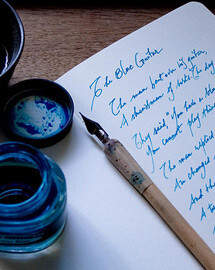 The Blue Guitar
The man bent over his guitar,
A shearsman of sorts. The day
They said "You have a blue
You cannot play
The man replied
changed
And
A